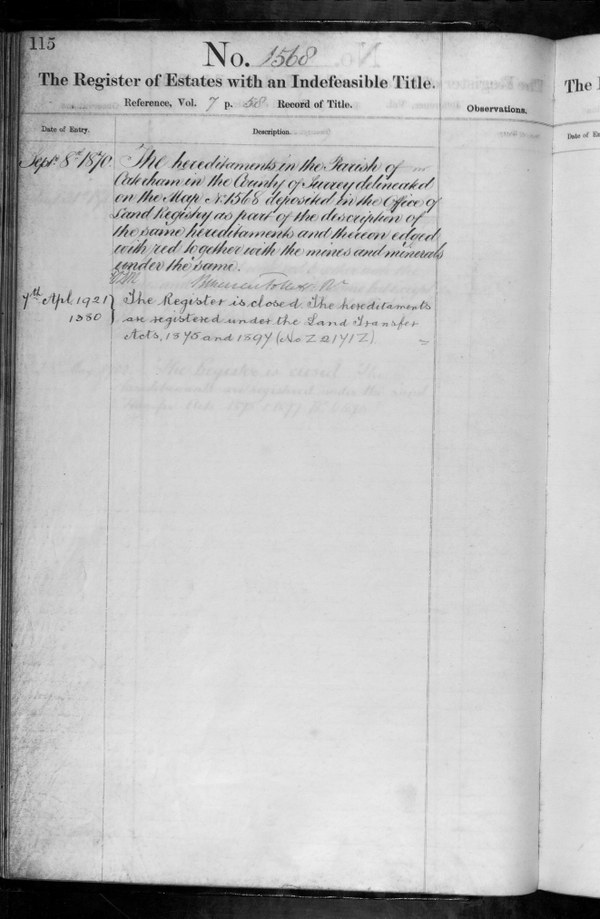 115
No. 1568
The Register of Estates with an Indefeasible Title.
Reference, Vol. 7 p. 58 Record of Title.
Observations.
Date of Entry.
Description.
Sept. 8th 1870
The hereditaments in the Parish of
Caterham in the County of Surrey delineated
on the Map No. 1568 deposited in the Office of
Land Registry as part of the description of
the same hereditaments and thereon edged
with red together with the mines and minerals
under the same.
7th Apl. 1921
1380
The Register is closed. The hereditaments
are registered under the Land Transfer
Acts, 1875 and 1897 (No Z 2171Z)
The
Date of En